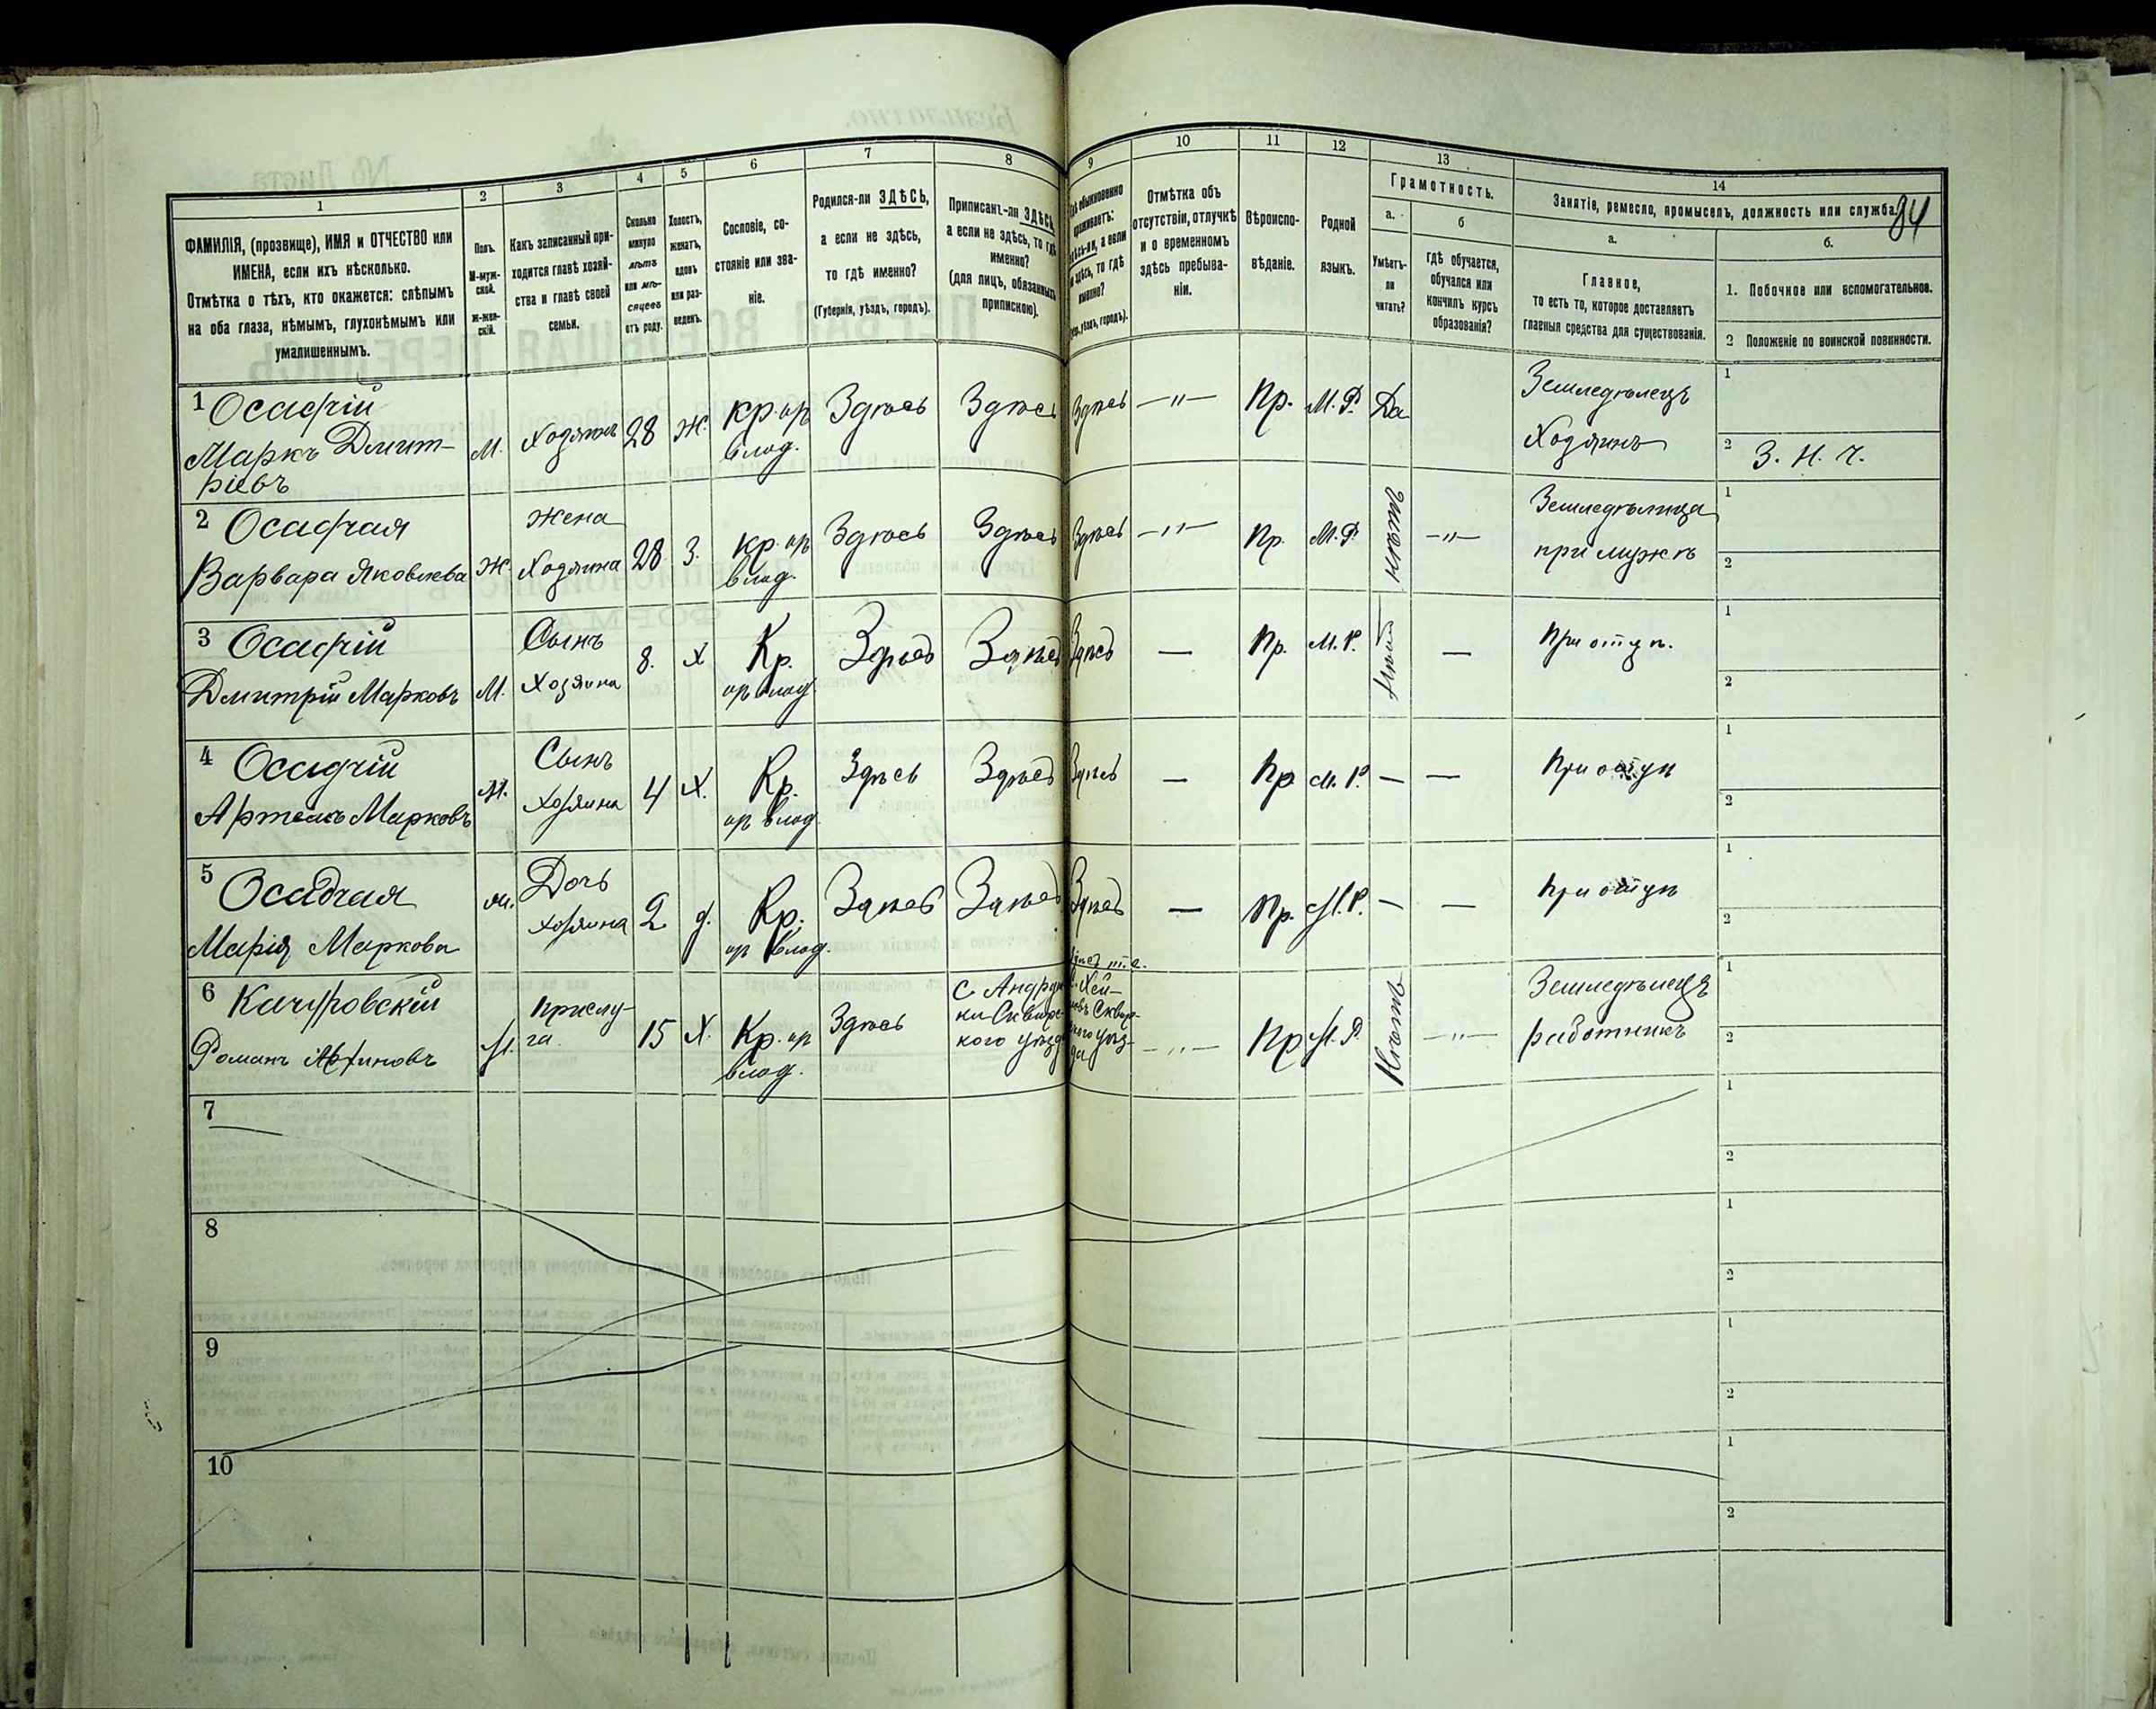 84
1 2 3 4 5 6 7 8 9 10 11 12 13 14
ФАМИЛІЯ, (прозвище), ИМЯ и ОТЧЕСТВО или
ИМЕНА, если ихъ нѣсколько.
Отмѣтка о тѣхъ, кто окажется: слѣпымъ
на оба глаза, нѣмымъ, глухонѣмымъ или
умалишеннымъ.
Полъ.
М-муж-
ской.
Ж-жен-
скій.
Какъ записанный при-
ходится главѣ хозяй-
ства и главѣ своей
семьи.
Сколько
минуло
лѣтъ
или мѣ-
сяцевъ
отъ роду.
Холостъ,
женатъ,
вдовъ
или раз-
веденъ.
Сословіе, со-
стояніе или зва-
ніе.
Родился-ли ЗДѢСЬ,
а если не здѣсь,
то гдѣ именно?
(Губернія, уѣздъ, городъ).
Приписанъ-ли ЗДѢСЬ,
а если не здѣсь, то гдѣ
именно?
(для лицъ, обязанныхъ
припискою).
обыкновенно
проживаетъ:
здѣсь-ли, а если
не здѣсь, то гдѣ
именно?
уѣздъ, городъ).
Отмѣтка объ
отсутствіи, отлучкѣ
и о временномъ
здѣсь пребыва-
ніи.
Вѣроиспо-
вѣданіе.
Родной
языкъ.
Грамотность.
а.
Умѣетъ-
ли
читать?
б
гдѣ обучается,
обучался или
кончилъ курсъ
образованія?
Занятіе, ремесло, промыселъ, должность или служба.
а.
Главное,
то есть то, которое доставляетъ
главныя средства для существованія.
б.
1. Побочное или вспомогательное.
2 Положеніе по воинской повинности.
1 Осадчій
Маркъ Дмит-
ріевъ
М. Хозяинъ 28 Ж. Кр. ир
влад.
Здѣсь Здѣсь Здѣсь —"— Пр. М.Р. Да
Земледѣлецъ
Хозяинъ
1
2 З. Н. Ч.
2 Осадчая
Варвара Яковлева
Ж. Жена
Хозяина 28 З. Кр. ир
влад.
Здѣсь Здѣсь Здѣсь —"— Пр. М.Р. нѣтъ —"—
Земледѣлица
при мужѣ
1
2
3 Осадчій
Дмитрій Марковъ
М. Сынъ
Хозяина 8. Х Кр.
ир влад
Здѣсь Здѣсь Здѣсь — Пр. М.Р. —
При отцѣ.
1
2
4 Осадчій
Артемъ Марковъ
М. Сынъ
Хозяина 4 Х. Кр.
ир влад.
Здѣсь Здѣсь Здѣсь — Пр М.Р. — —
При отцѣ
1
2
5 Осадчая
Марія Маркова
Дочь
Хозяина 2 д. Кр.
ир влад.
Здѣсь Здѣсь Здѣсь — Пр. М.Р. — —
При отцѣ
1
2
6
Романъ
М. Прислу-
га 15 Х. Кр. ир
влад.
Здѣсь
С. Андруш-
ки Сквирс-
кого уѣзда
Сквир-
ского уѣз-
да
—"— Пр М.Р. Нѣтъ —"—
Земледѣлецъ
работникъ
1
2
7
1
2
8
1
2
9
1
2
10
1
2